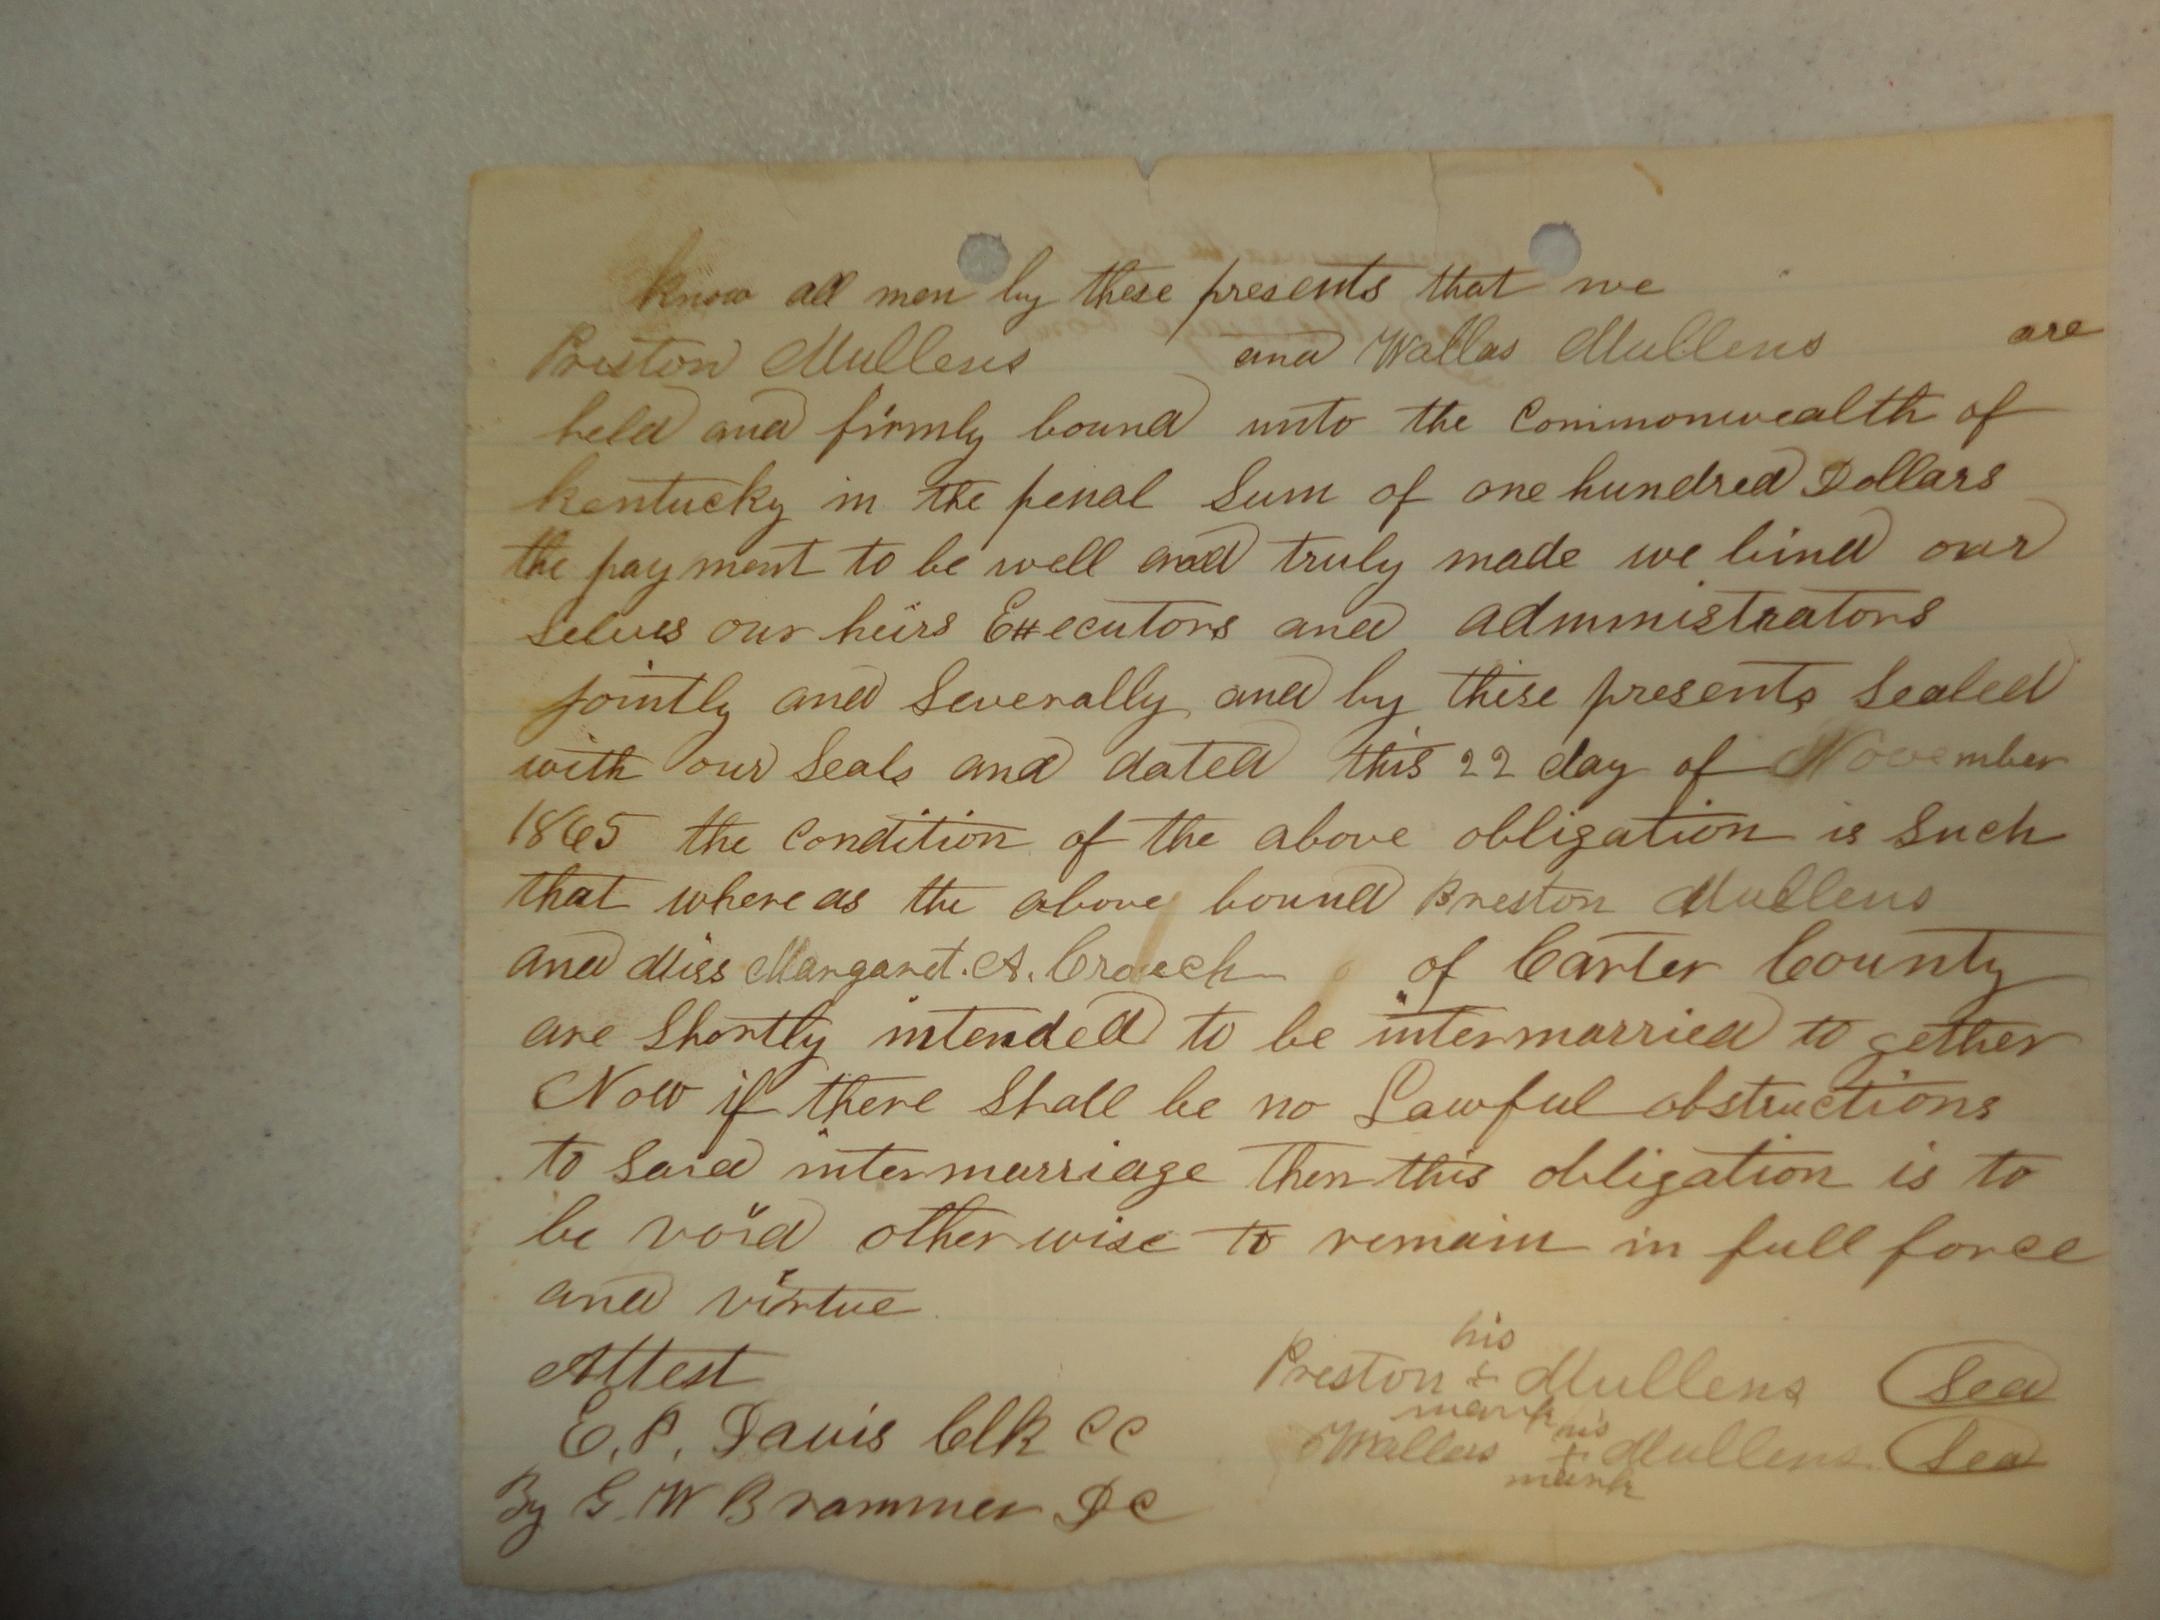 know all men by these presents that we
Preston Mullens and Wallas Mullens are
held and firmly bound unto the Commonwealth of
Kentucky in the penal Sum of one hundred Dollars
the payment to be well and truly made we bind our
selves our heirs Executors and administrators
jointly and Severally and by these presents Sealed
with our Seals and dated this 22 day of November
1865 the Condition of the above obligation is Such
that where as the above bound Preston Mullens
and Miss Margaret. A. Crouch of Carter County
are Shortly intended to be intermarried to gether
Now if there Shall be no Lawful obstructions
to Said intermarriage then this obligation is to
be void other wise to remain in full force
and virtue
Attest
his
Preston + Mullens Seal
mark
E. P. Davis Clk CC
his
Wallas + Mullens Seal
mark
By G. W Brammer DC